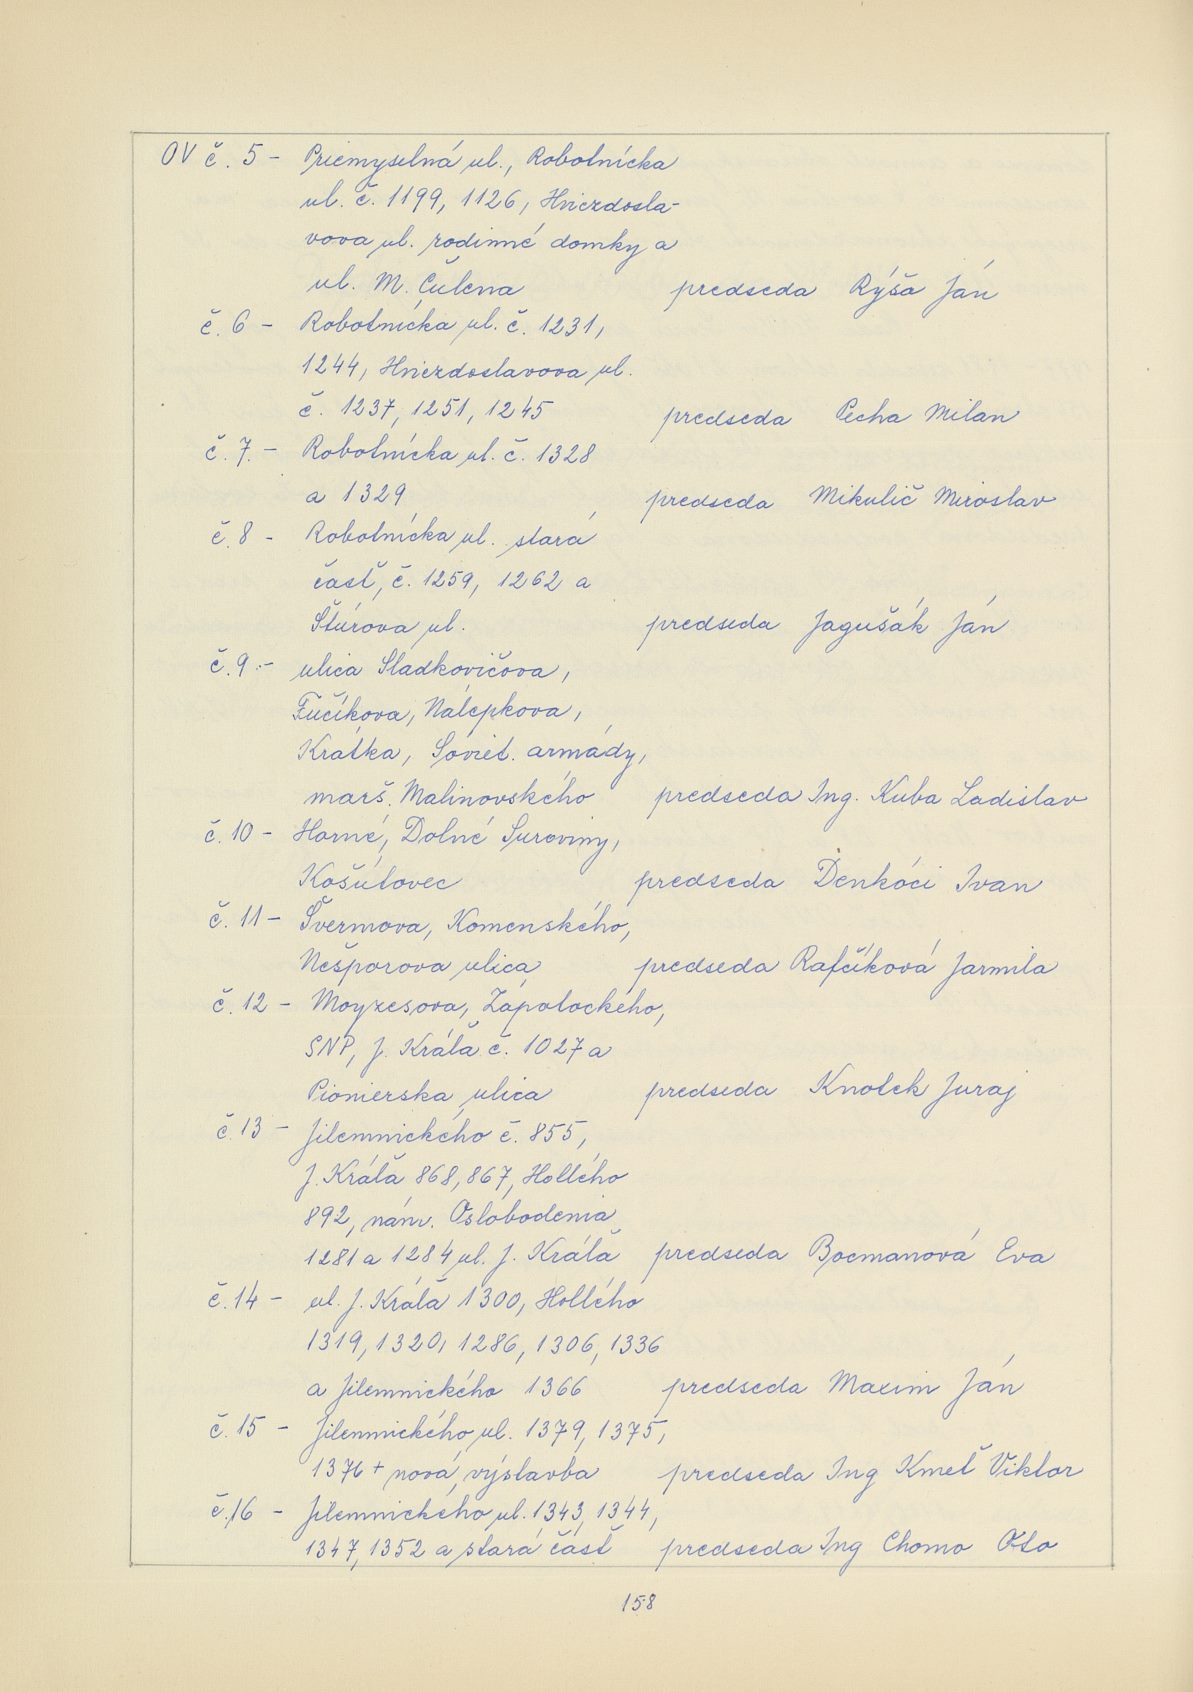 OV č. 5 - Priemyselná ul., Robotnícka
ul. č. 1199, 1126, Hviezdosla-
vova ul. rodinné domky a
ul. M. Čulena predseda Rýša Ján
č. 6 - Robotnícka ul. č. 1231,
1244, Hviezdoslavova ul.
č. 1237, 1251, 1245 predseda Pecha Milan
č. 7. - Robotnícka ul. č. 1328
a 1329 predseda Mikulič Miroslav
č. 8 - Robotnícka ul. stará
časť, č. 1259, 1262 a
Štúrova ul. predseda Jagušák Ján
č. 9 - ulica Sladkovičova,
Fučíkova, Nálepkova,
Krátka, Soviet. armády,
marš. Malinovského predseda Ing. Kuba Ladislav
č. 10 - Horné, Dolné Suroviny,
Košútovec predseda Denkóci Ivan
č. 11 - Švermova, Komenského,
Nešporova ulica predseda Rafčíková Jarmila
č. 12 - Moyzesova, Zápotockého,
SNP, J. Kráľa č. 1027 a
Pionierska ulica predseda Knotek Juraj
č. 13 - Jilemnického č. 855,
J. Kráľa 868, 867, Hollého
892, nám. Oslobodenia
1281 a 1284 ul. J. Kráľa predseda Bocmanová Eva
č. 14 - ul. J. Kráľa 1300, Hollého
1319, 1320, 1286, 1306, 1336
a Jilemnického 1366 predseda Maxim Ján
č. 15 - Jilemnického ul. 1379, 1375,
1376 + nová výstavba predseda Ing Kmeť Viktor
č. 16 - Jilemnického ul. 1343, 1344,
1347, 1352 a stará časť predseda Ing Chomo Oto
158